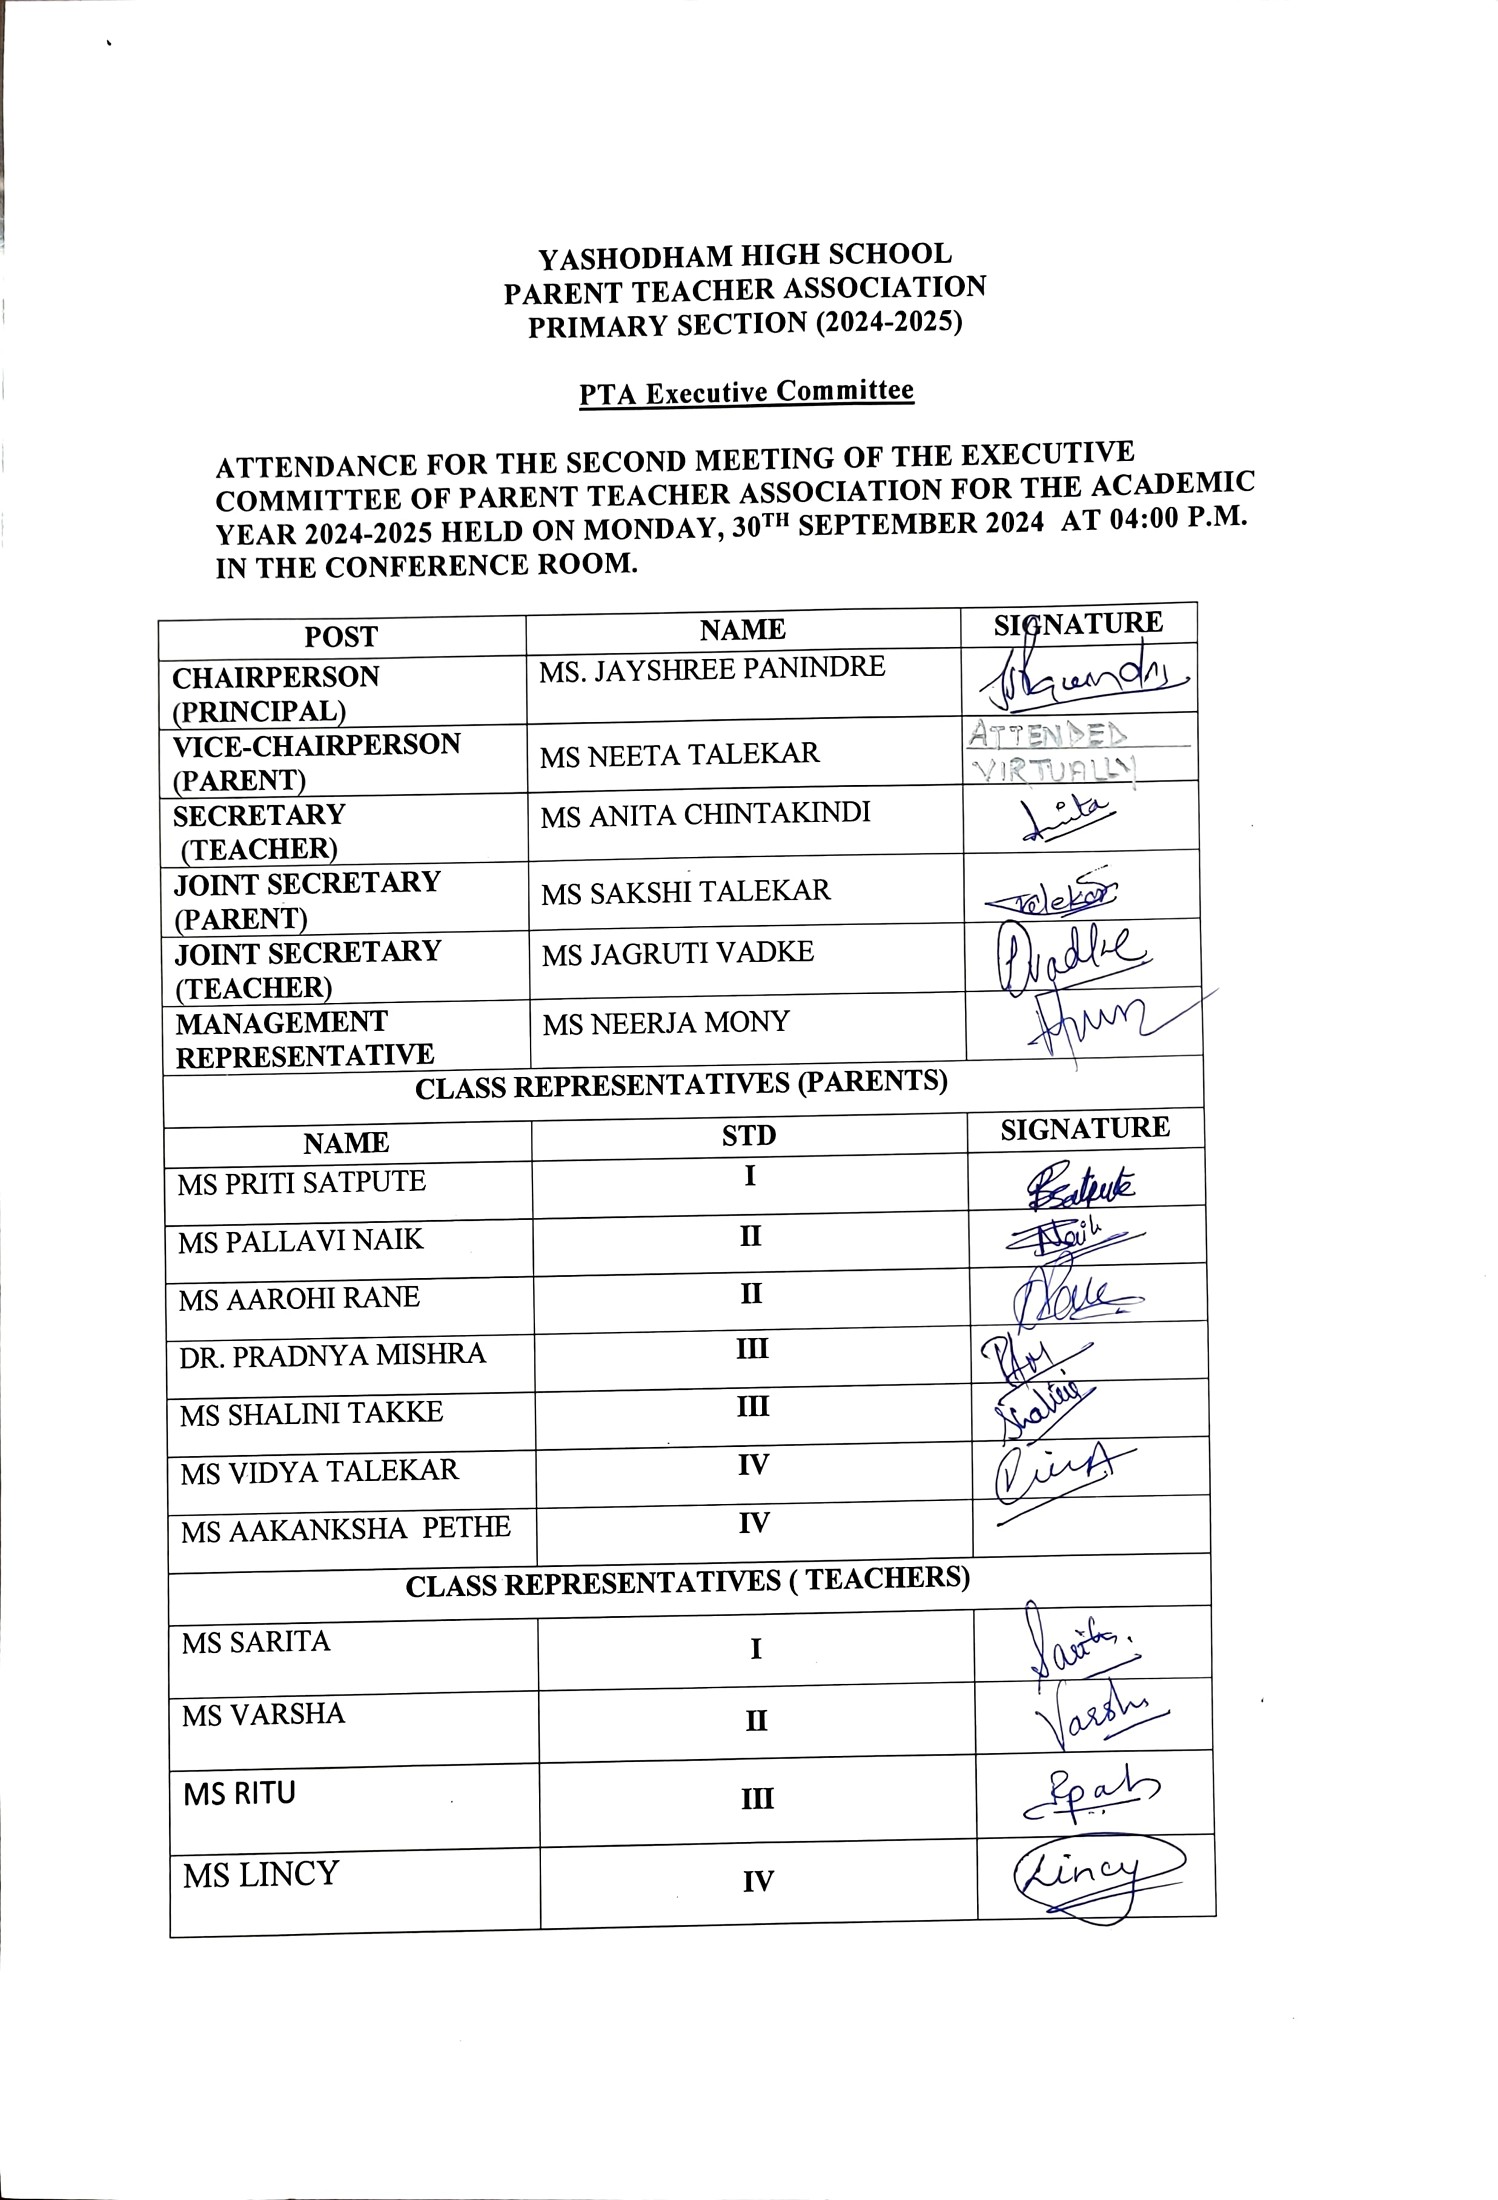 YASHODHAM HIGH SCHOOL
PARENT TEACHER ASSOCIATION
PRIMARY SECTION (2024-2025)
PTA Executive Committee
ATTENDANCE FOR THE SECOND MEETING OF THE EXECUTIVE
COMMITTEE OF PARENT TEACHER ASSOCIATION FOR THE ACADEMIC
YEAR 2024-2025 HELD ON MONDAY, 30TH SEPTEMBER 2024 AT 04:00 P.M.
IN THE CONFERENCE ROOM.
POST NAME SIGNATURE
CHAIRPERSON
(PRINCIPAL) MS. JAYSHREE PANINDRE
VICE-CHAIRPERSON
(PARENT) MS NEETA TALEKAR ATTENDED
VIRTUALLY
SECRETARY
(TEACHER) MS ANITA CHINTAKINDI Anita
JOINT SECRETARY
(PARENT) MS SAKSHI TALEKAR Talekar
JOINT SECRETARY
(TEACHER) MS JAGRUTI VADKE Vadke
MANAGEMENT
REPRESENTATIVE MS NEERJA MONY
CLASS REPRESENTATIVES (PARENTS)
NAME STD SIGNATURE
MS PRITI SATPUTE I PSatpute
MS PALLAVI NAIK II Naik
MS AAROHI RANE II Rane
DR. PRADNYA MISHRA III
MS SHALINI TAKKE III Shalini
MS VIDYA TALEKAR IV
MS AAKANKSHA PETHE IV
CLASS REPRESENTATIVES ( TEACHERS)
MS SARITA I Sarita
MS VARSHA II Varsha
MS RITU III
MS LINCY IV Lincy